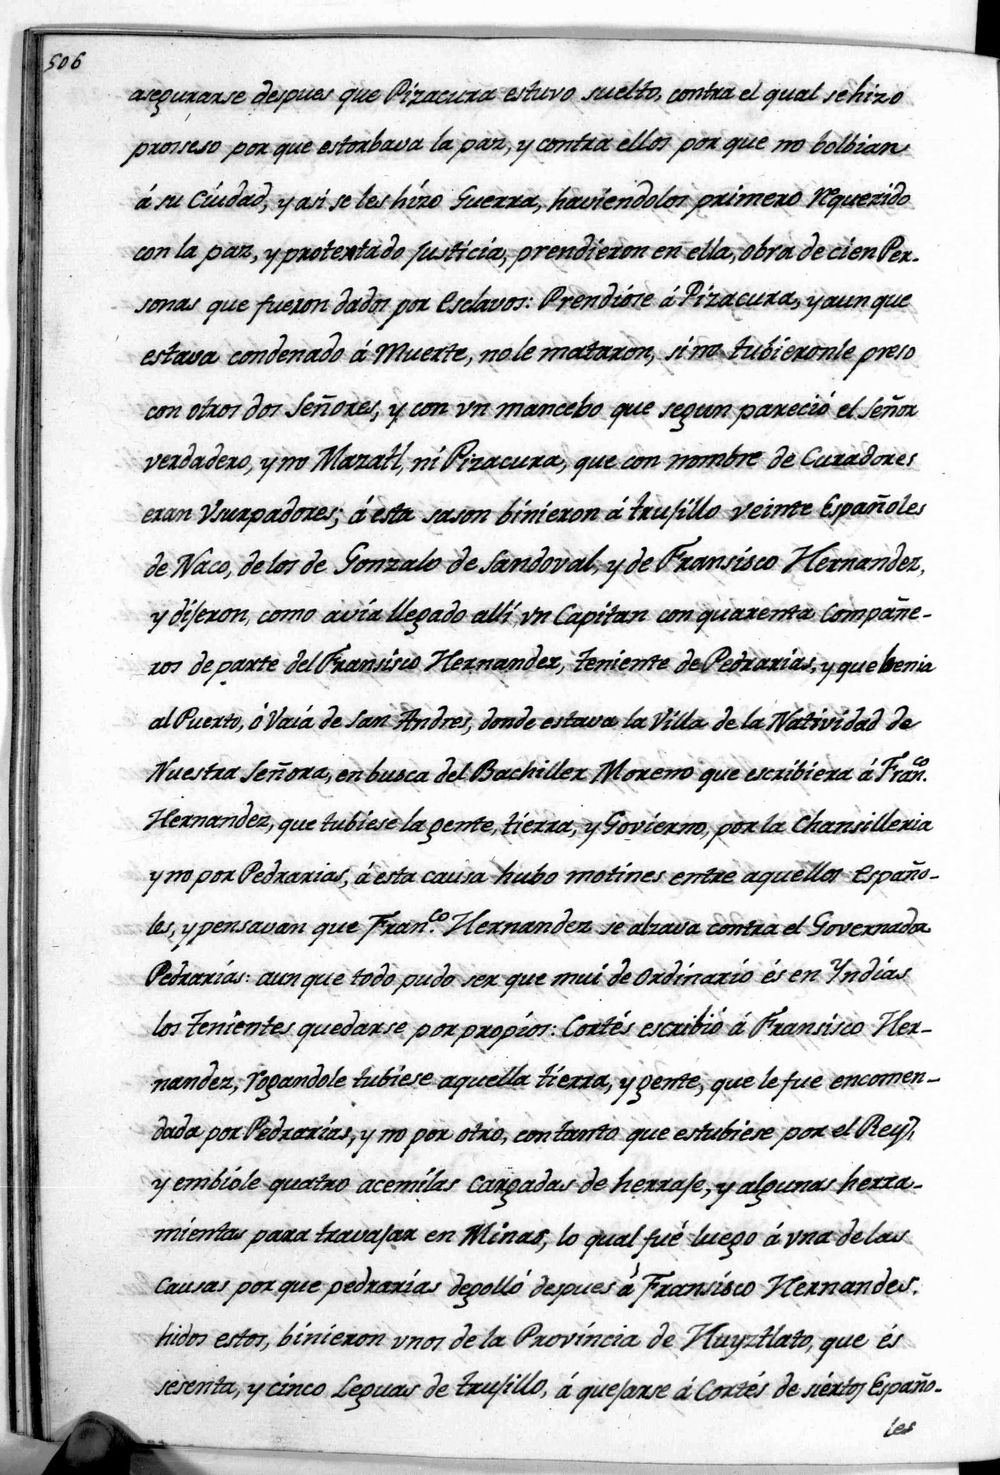 506
asegurarse despues que Pizacura estuvo suelto, contra el qual se hizo
prosseso por que estorbava la paz, y contra ellos por que no bolbian
á su Ciudad, y asi se les hizo Guerra, haviendolos primero requerido
con la paz, y protextado Justicia, prendieron en ella, obra de cien Per-
sonas que fueron dados por Esclavos: Prendióse á Pizacura, y aun que
estava condenado á Muerte, no le mataron, si no tubieronle preso
con otros dos Señores, y con vn mancebo que segun pareció el Señor
verdadero, y no Mazatl, ni Pizacura, que con nombre de Curadores
eran Vsurpadores; á esta sason binieron á trusillo veinte Españoles
de Naco, de los de Gonzalo de Sandoval, y de Fransisco Hernandez,
y dijeron, como avia llegado alli vn Capitan con quarenta Compañe-
ros de parte del Fransisco Hernandez, teniente de Pedrarias, y que benia
al Puerto, ó Vaiá de San Andres, donde estava la Villa de la Natividad de
Nuestra Señora, en busca del Bachiller Moreno que escribiera á Fran.co
Hernandez, que tubiese la gente, tierra, y Govierno, por la Chansilleria
y no por Pedrarias, á esta causa hubo motines entre aquellos Españo-
les, y pensavan que Fran.co Hernandez se alzava contra el Governador
Pedrarias: aun que todo pudo ser que mui de Ordinario és en Yndias
los tenientes quedarse por propios: Cortés escribió á Fransisco Her-
nandez, rogandole tubiese aquella tierra, y gente, que le fue encomen-
dada por Pedrarias, y no por otro, con tanto que estubiese por el Rey,
y embióle quatro acemilas cargadas de herraje, y algunas herra-
mientas para travajar en Minas, lo qual fué luego á vna de las
Causas por que pedrarias degolló despues á Fransisco Hernandes.
hidos estos, binieron vnos de la Provincia de Huyztlato, que és
sesenta, y cinco Leguas de trusillo, á quejarse á Cortés de siértos Españo-
les